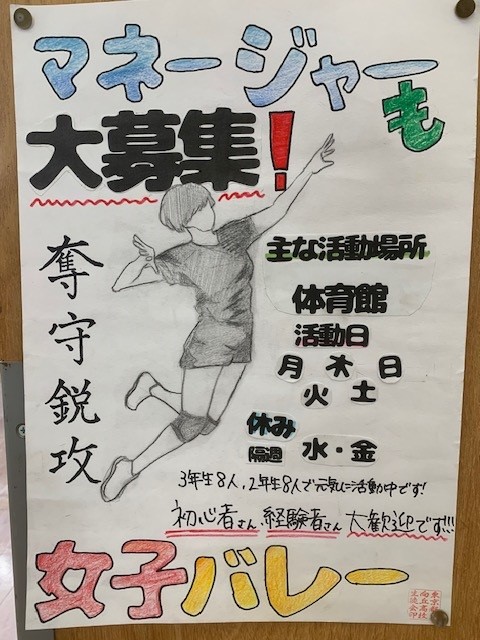 マネージャーも
大募集!
奪守鋭攻
主な活動場所
体育館
活動日
月 木 日
火 土
休み
隔週 水・金
3年生8人、2年生8人で元気に活動中です!
初心者さん 経験者さん 大歓迎です!!!
女子バレー